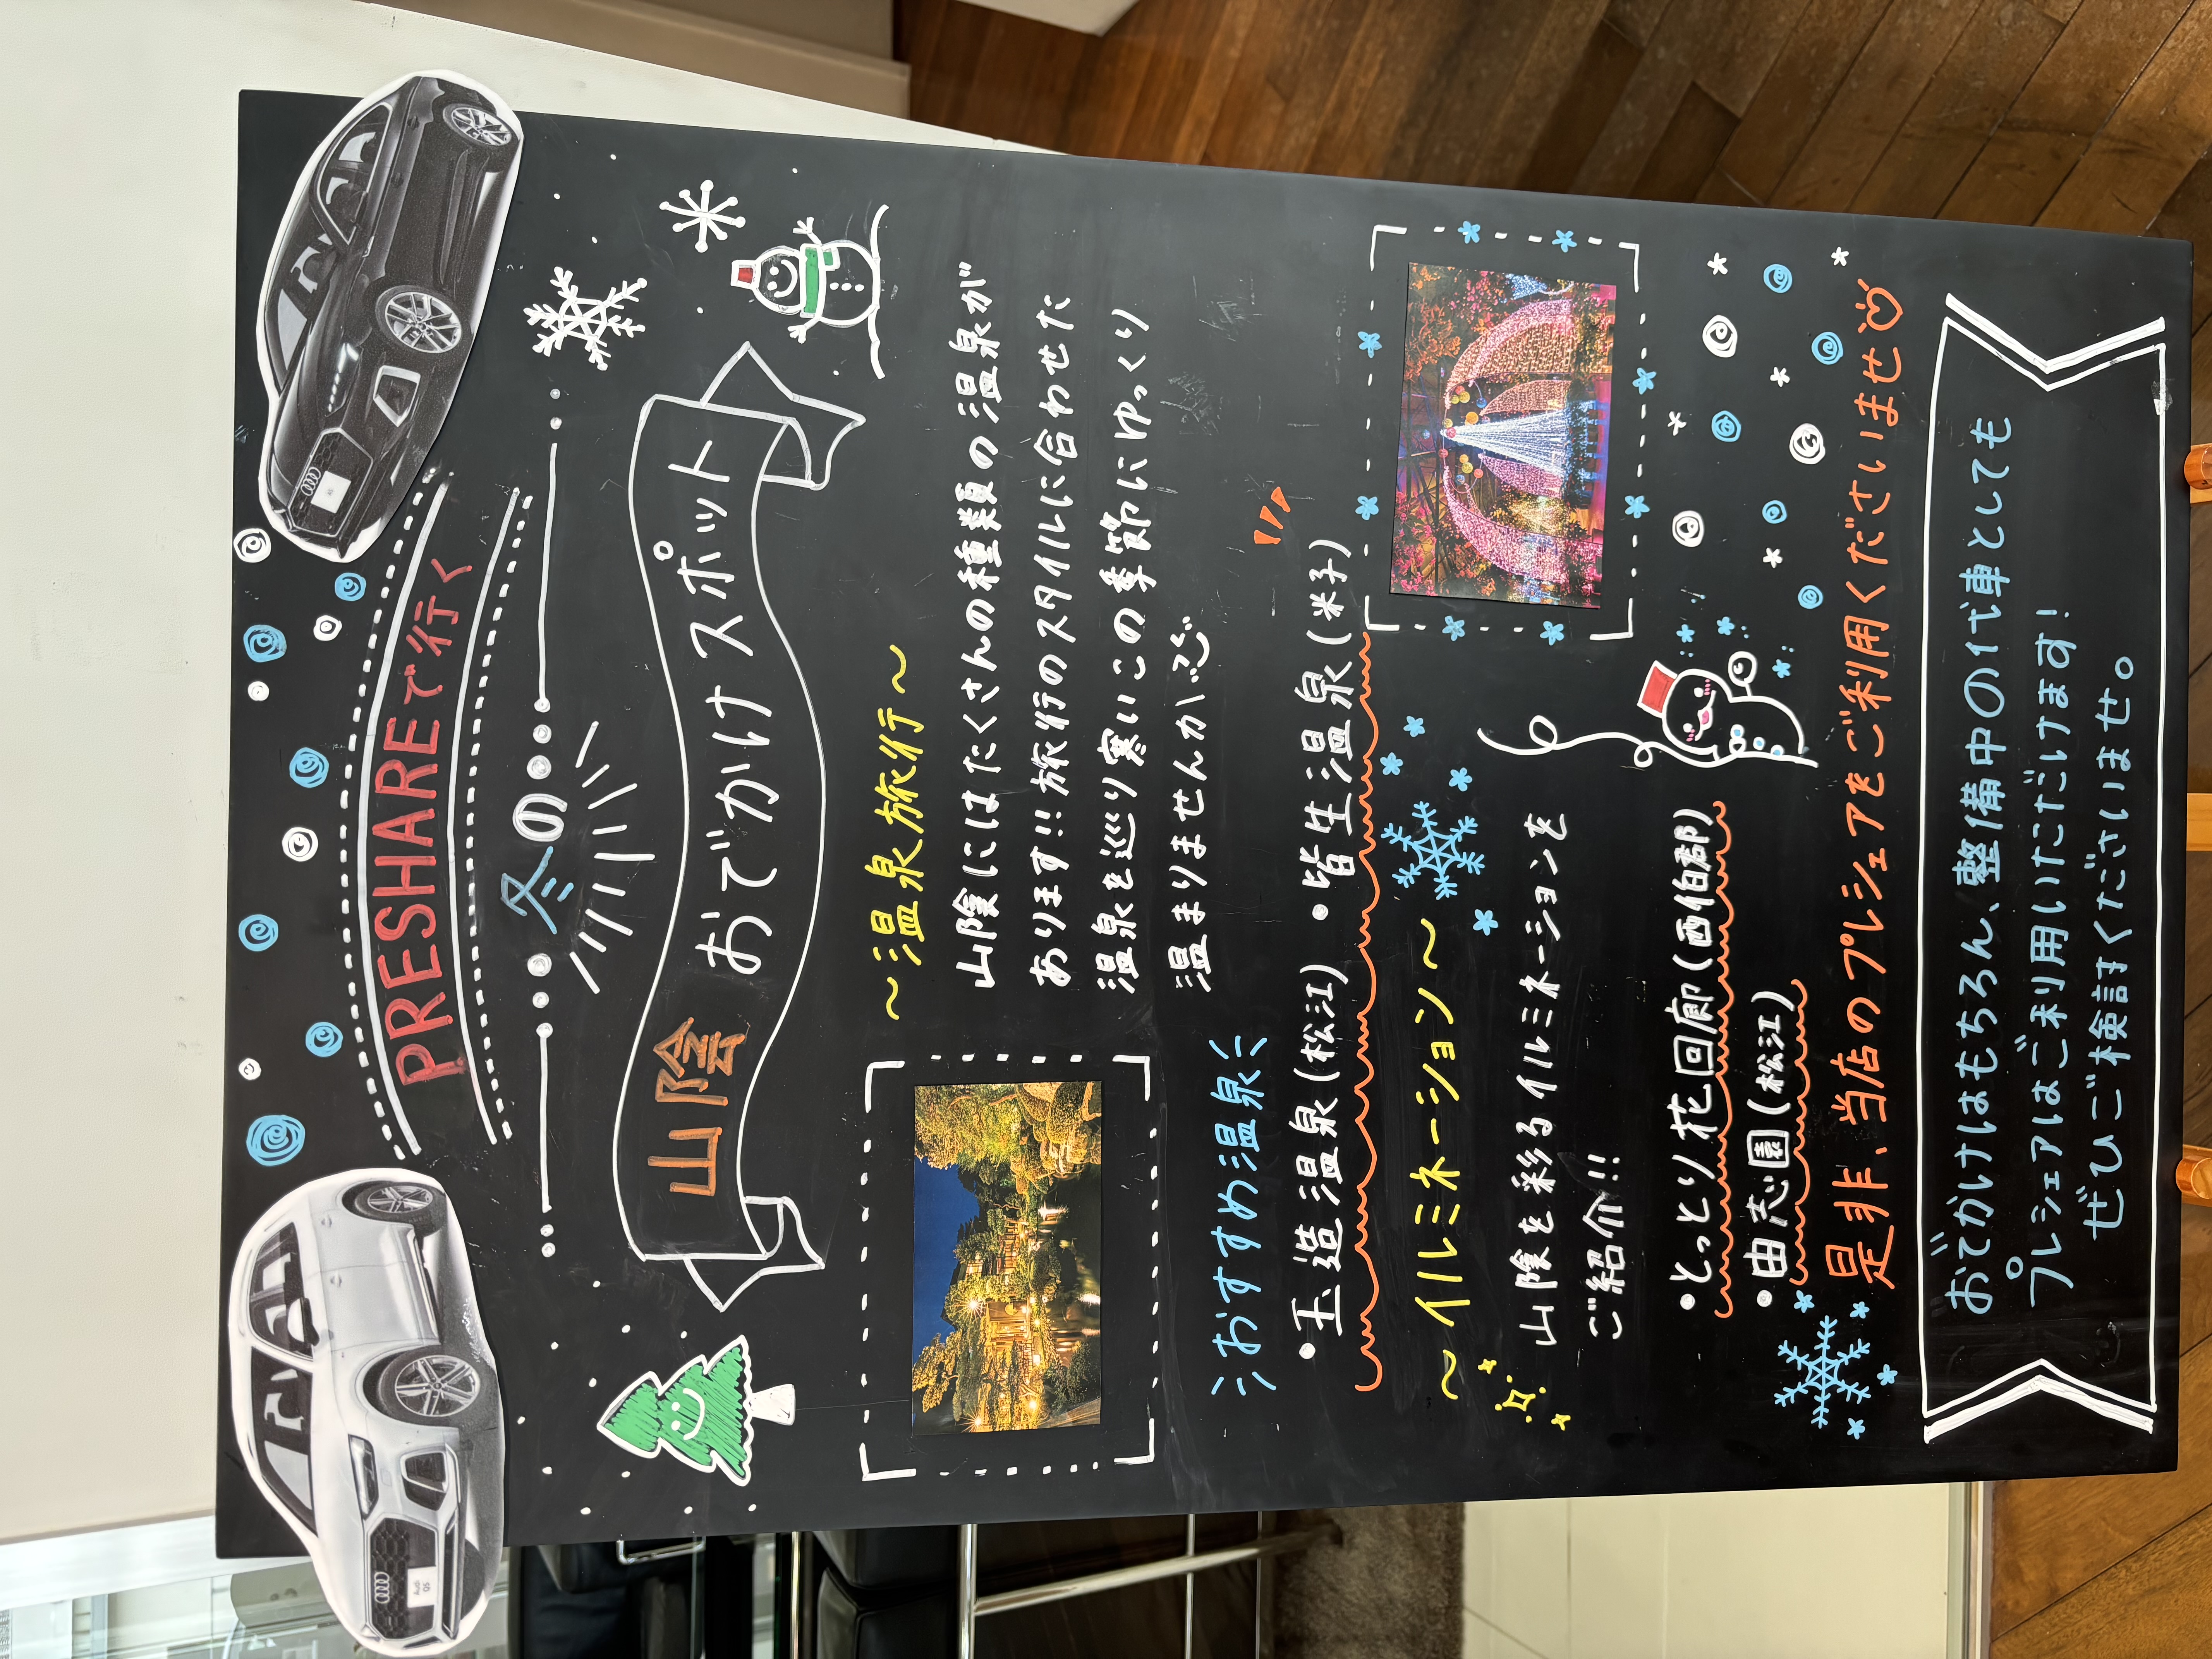 PRESHAREで行く
冬の
山陰 おでかけスポット
～温泉旅行～
山陰にはたくさんの種類の温泉が
あります!!旅行のスタイルに合わせた
温泉を巡り寒いこの季節にゆっくり
温まりませんか
おすすめ温泉
・玉造温泉(松江) ・皆生温泉(米子)
～イルミネーション～
山陰を彩るイルミネーションを
ご紹介!!
・とっとり花回廊(西伯郡)
・由志園(松江)
是非、当店のプレシェアをご利用くださいませ♡
おでかけはもちろん、整備中の代車としても
プレシェアはご利用いただけます!
ぜひご検討くださいませ。